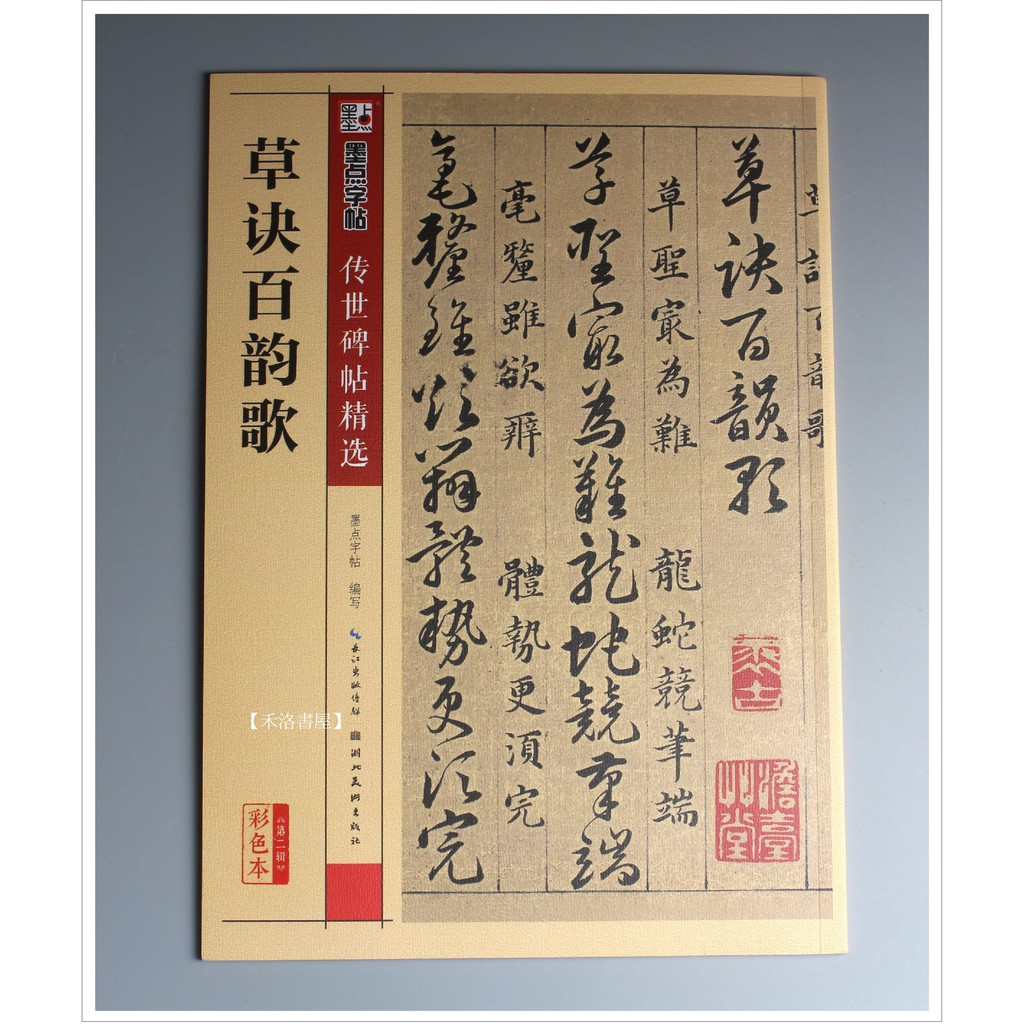 草诀百韵歌
墨点
墨点字帖
传世碑帖精选
墨点字帖 编写
长江出版传媒
湖北美术出版社
彩色本
第二辑
【禾洛書屋】
草訣百韻歌
草訣百韻歌
草聖冣為難 龍蛇競筆端
草聖冣為難龍蛇競筆端
毫釐雖欲辨 體勢更須完
毫釐雖欲辨體勢更須完